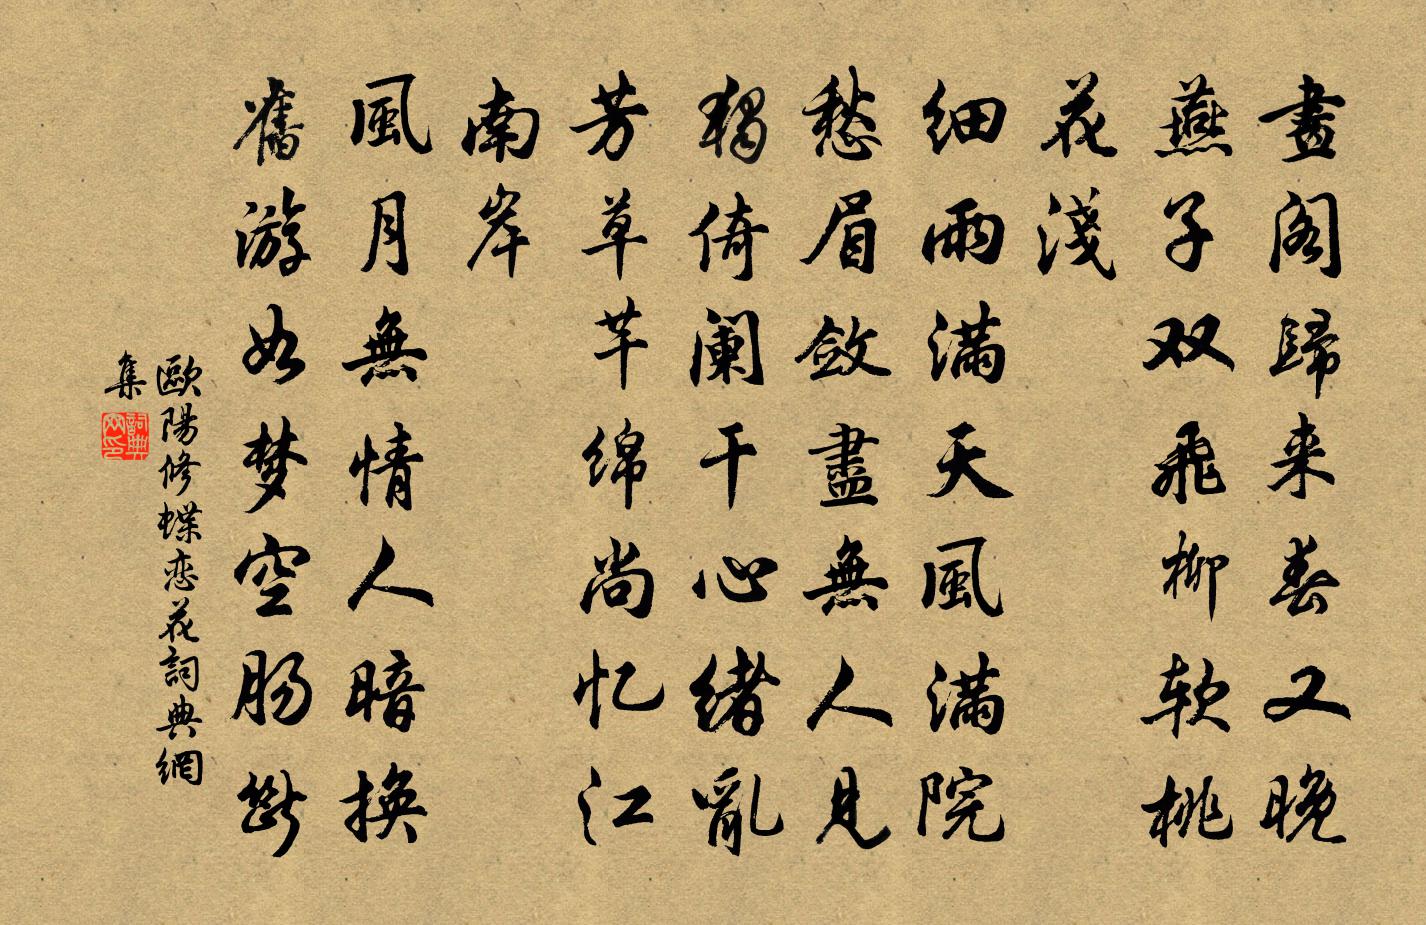 畫閣歸来春又晚
燕子双飛柳软桃
花淺
细雨满天風满院
愁眉敛盡無人見
獨倚阑干心緒亂
芳草芊绵尚忆江
南岸
風月無情人暗换
舊游如梦空肠斷
歐陽修蝶恋花詞典網
集
詞典网印